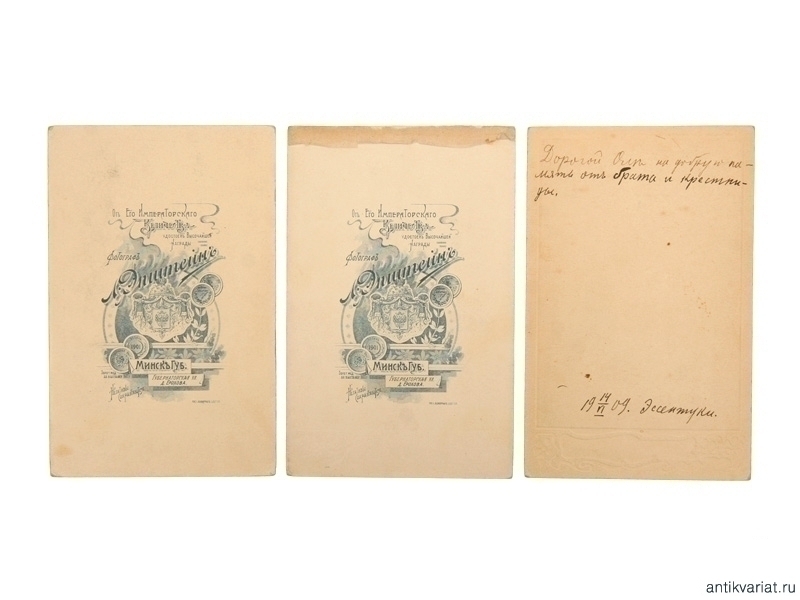 Отъ Его Императорскаго
Величества
удостоенъ Высочайшей
награды
фотографъ
Эпштейнъ
1901
Минскъ Губ.
Губернаторская ул.
д. Ерохова.
Отъ Его Императорскаго
Величества
удостоенъ Высочайшей
награды
фотографъ
Эпштейнъ
1901
Минскъ Губ.
Губернаторская ул.
д. Ерохова.
Дорогой Оле на добрую па-
мять отъ брата и крестни-
цы.
19 14/VI 09. Эссентуки.
antikvariat.ru